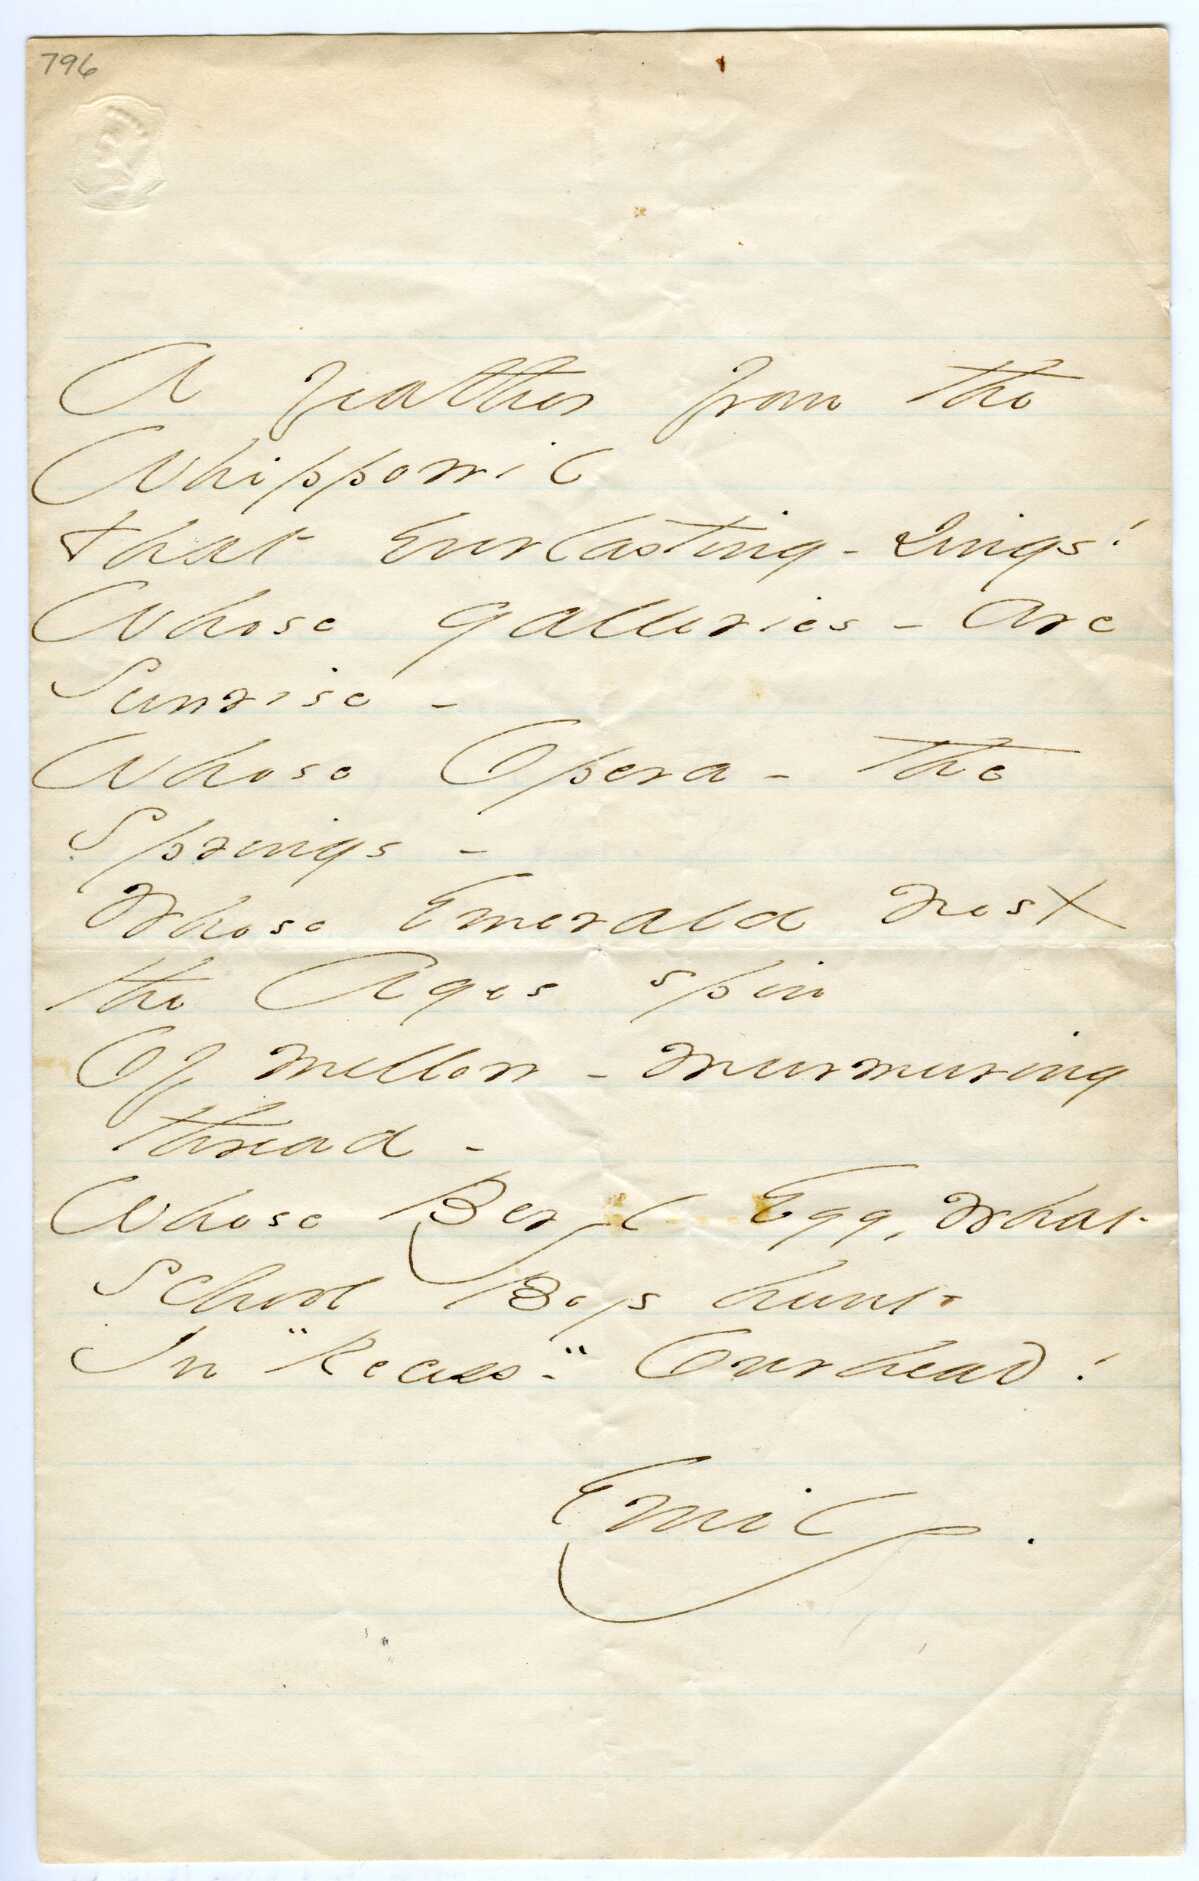 796
A feather from the
Whippowil
That Everlasting - sings!
Whose galleries - are
Sunrise -
Whose Opera - the
Springs -
Whose Emerald nest
the Ages spin
Of mellow - murmuring
thread -
Whose Beryl Egg, what
School Boys hunt
In "Recess" - Overhead!
Emily.